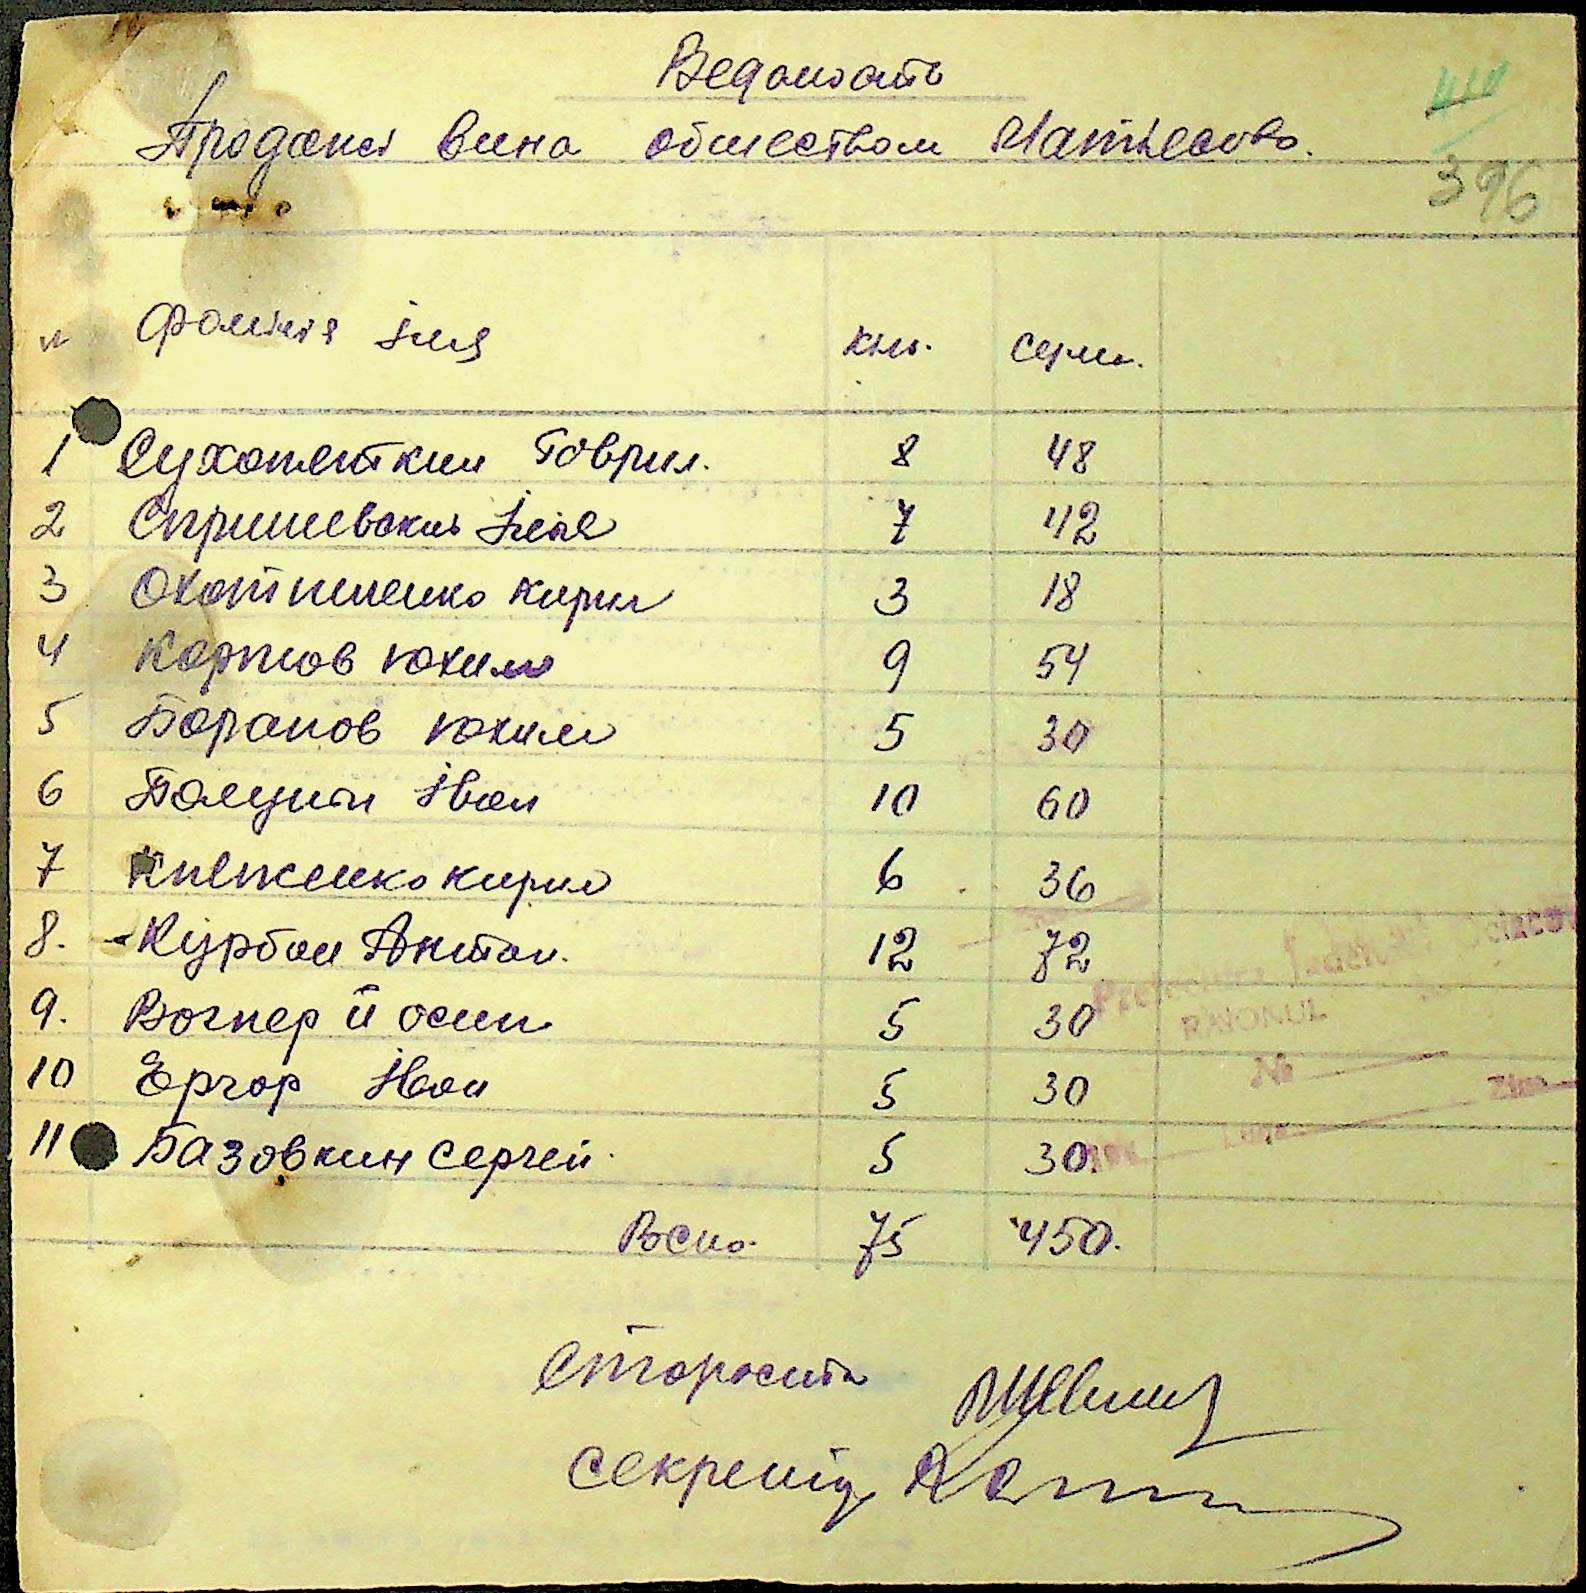 Ведомость
Продажи вина обществом
396
н Фамилія імя кіл. сум.
1 Сухопяткин Гаврил. 8 48
2 Спришевский Ілья 7 42
3 Охотниченко Кирил 3 18
4 Карпов Юхим 9 54
5 Баранов Юхим 5 30
6 Болушти Іван 10 60
7 Княженко Кирил 6 36
8. Курбан Антон. 12 72
9. Вогнер Йосип 5 30
10 Ергор Іван 5 30
11 Базовкин Сергей. 5 30
Всио. 75 450.
RAIONUL
№
Староста
Секретар